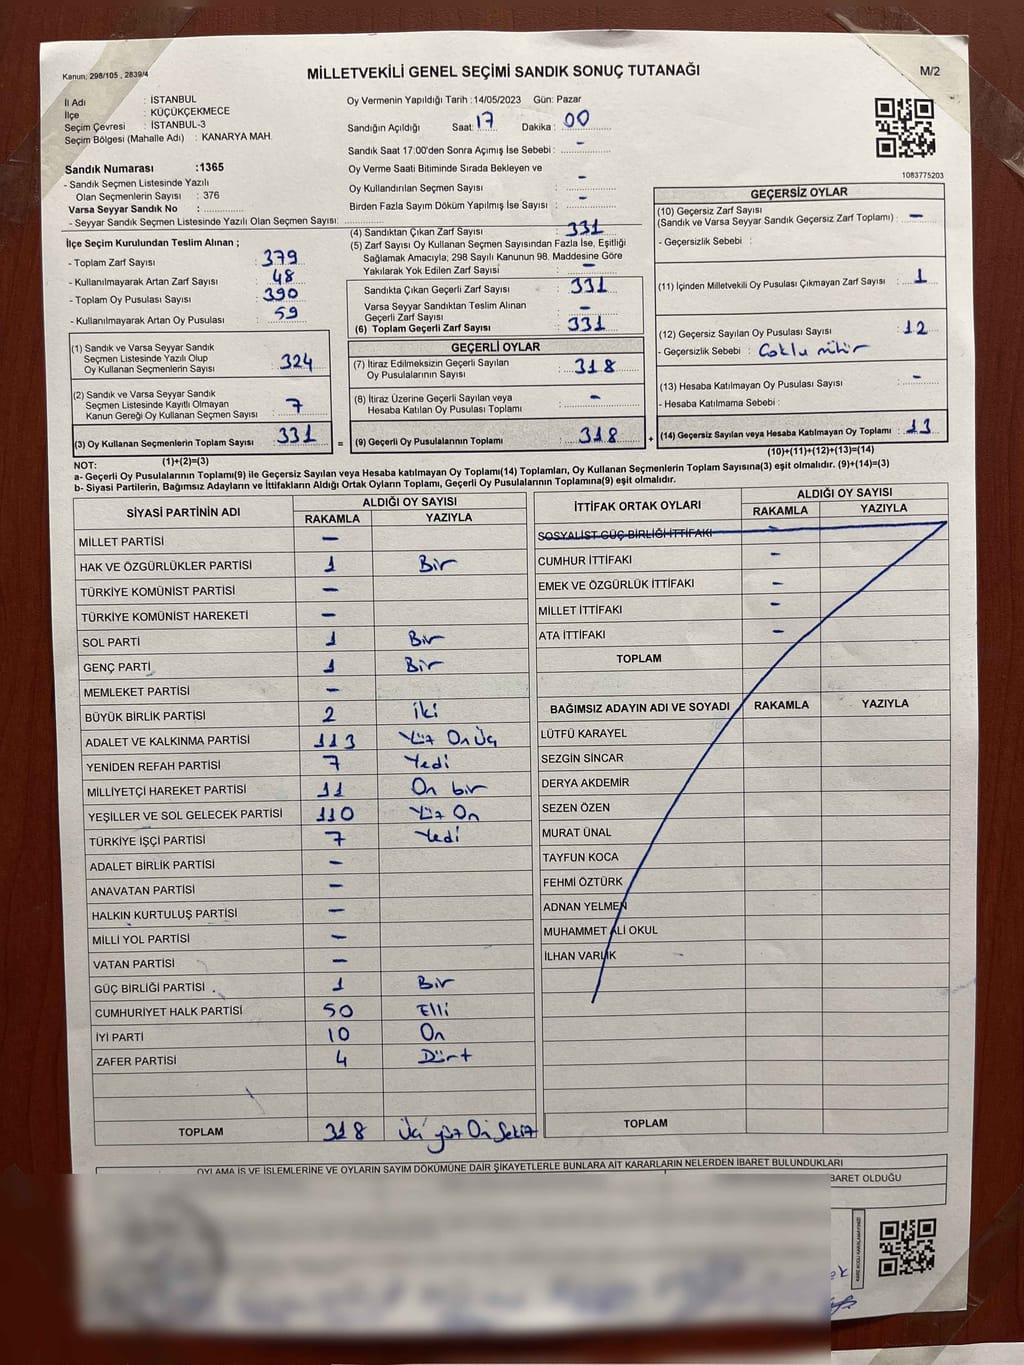 Kanun; 298/105 , 2839/4
MİLLETVEKİLİ GENEL SEÇİMİ SANDIK SONUÇ TUTANAĞI
M/2
İl Adı : İSTANBUL
İlçe : KÜÇÜKÇEKMECE
Seçim Çevresi : İSTANBUL-3
Seçim Bölgesi (Mahalle Adı) : KANARYA MAH.
Sandık Numarası :1365
- Sandık Seçmen Listesinde Yazılı
Olan Seçmenlerin Sayısı : 376
Varsa Seyyar Sandık No :
- Seyyar Sandık Seçmen Listesinde Yazılı Olan Seçmen Sayısı:
Oy Vermenin Yapıldığı Tarih :14/05/2023 Gün: Pazar
Sandığın Açıldığı Saat: 17 Dakika : 00
Sandık Saat 17:00'den Sonra Açımış İse Sebebi : -
Oy Verme Saati Bitiminde Sırada Bekleyen ve
Oy Kullandırılan Seçmen Sayısı : -
Birden Fazla Sayım Döküm Yapılmış İse Sayısı : -
1083775203
İlçe Seçim Kurulundan Teslim Alınan ;
- Toplam Zarf Sayısı : 379
- Kullanılmayarak Artan Zarf Sayısı : 48
- Toplam Oy Pusulası Sayısı : 390
- Kullanılmayarak Artan Oy Pusulası : 59
(1) Sandık ve Varsa Seyyar Sandık
Seçmen Listesinde Yazılı Olup
Oy Kullanan Seçmenlerin Sayısı : 324
(2) Sandık ve Varsa Seyyar Sandık
Seçmen Listesinde Kayıtlı Olmayan
Kanun Gereği Oy Kullanan Seçmen Sayısı : 7
(3) Oy Kullanan Seçmenlerin Toplam Sayısı : 331
(1)+(2)=(3)
(4) Sandıktan Çıkan Zarf Sayısı : 331
(5) Zarf Sayısı Oy Kullanan Seçmen Sayısından Fazla İse, Eşitliği
Sağlamak Amacıyla; 298 Sayılı Kanunun 98. Maddesine Göre
Yakılarak Yok Edilen Zarf Sayısı : -
Sandıkta Çıkan Geçerli Zarf Sayısı : 331
Varsa Seyyar Sandıktan Teslim Alınan
Geçerli Zarf Sayısı : -
(6) Toplam Geçerli Zarf Sayısı : 331
GEÇERLİ OYLAR
(7) İtiraz Edilmeksizin Geçerli Sayılan
Oy Pusulalarının Sayısı : 318
(8) İtiraz Üzerine Geçerli Sayılan veya
Hesaba Katılan Oy Pusulası Toplamı : -
= (9) Geçerli Oy Pusulalarının Toplamı : 318 +
GEÇERSİZ OYLAR
(10) Geçersiz Zarf Sayısı
(Sandık ve Varsa Seyyar Sandık Geçersiz Zarf Toplamı) : -
- Geçersizlik Sebebi :
(11) İçinden Milletvekili Oy Pusulası Çıkmayan Zarf Sayısı : 1
(12) Geçersiz Sayılan Oy Pusulası Sayısı : 12
- Geçersizlik Sebebi : Çoklu mühür
(13) Hesaba Katılmayan Oy Pusulası Sayısı : -
- Hesaba Katılmama Sebebi :
(14) Geçersiz Sayılan veya Hesaba Katılmayan Oy Toplamı : 13
(10)+(11)+(12)+(13)=(14)
NOT:
a- Geçerli Oy Pusulalarının Toplamı(9) ile Geçersiz Sayılan veya Hesaba katılmayan Oy Toplamı(14) Toplamları, Oy Kullanan Seçmenlerin Toplam Sayısına(3) eşit olmalıdır. (9)+(14)=(3)
b- Siyasi Partilerin, Bağımsız Adayların ve İttifakların Aldığı Ortak Oyların Toplamı, Geçerli Oy Pusulalarının Toplamına(9) eşit olmalıdır.
SİYASİ PARTİNİN ADI ALDIĞI OY SAYISI
RAKAMLA YAZIYLA
MİLLET PARTİSİ -
HAK VE ÖZGÜRLÜKLER PARTİSİ 1 Bir
TÜRKİYE KOMÜNİST PARTİSİ -
TÜRKİYE KOMÜNİST HAREKETİ -
SOL PARTİ 1 Bir
GENÇ PARTİ 1 Bir
MEMLEKET PARTİSİ -
BÜYÜK BİRLİK PARTİSİ 2 İki
ADALET VE KALKINMA PARTİSİ 113 Yüz On Üç
YENİDEN REFAH PARTİSİ 7 Yedi
MİLLİYETÇİ HAREKET PARTİSİ 11 On bir
YEŞİLLER VE SOL GELECEK PARTİSİ 110 Yüz On
TÜRKİYE İŞÇİ PARTİSİ 7 Yedi
ADALET BİRLİK PARTİSİ -
ANAVATAN PARTİSİ -
HALKIN KURTULUŞ PARTİSİ -
MİLLİ YOL PARTİSİ -
VATAN PARTİSİ -
GÜÇ BİRLİĞİ PARTİSİ 1 Bir
CUMHURİYET HALK PARTİSİ 50 Elli
İYİ PARTİ 10 On
ZAFER PARTİSİ 4 Dört
TOPLAM 318 Üç yüz On Sekiz
İTTİFAK ORTAK OYLARI ALDIĞI OY SAYISI
RAKAMLA YAZIYLA
SOSYALİST GÜÇ BİRLİĞİ İTTİFAKI -
CUMHUR İTTİFAKI -
EMEK VE ÖZGÜRLÜK İTTİFAKI -
MİLLET İTTİFAKI -
ATA İTTİFAKI -
TOPLAM
BAĞIMSIZ ADAYIN ADI VE SOYADI RAKAMLA YAZIYLA
LÜTFÜ KARAYEL
SEZGİN SİNCAR
DERYA AKDEMİR
SEZEN ÖZEN
MURAT ÜNAL
TAYFUN KOCA
FEHMİ ÖZTÜRK
ADNAN YELMEN
MUHAMMET ALİ OKUL
İLHAN VARLIK
TOPLAM
OYLAMA İŞ VE İŞLEMLERİNE VE OYLARIN SAYIM DÖKÜMÜNE DAİR ŞİKAYETLERLE BUNLARA AİT KARARLARIN NELERDEN İBARET BULUNDUKLARI
BARET OLDUĞU